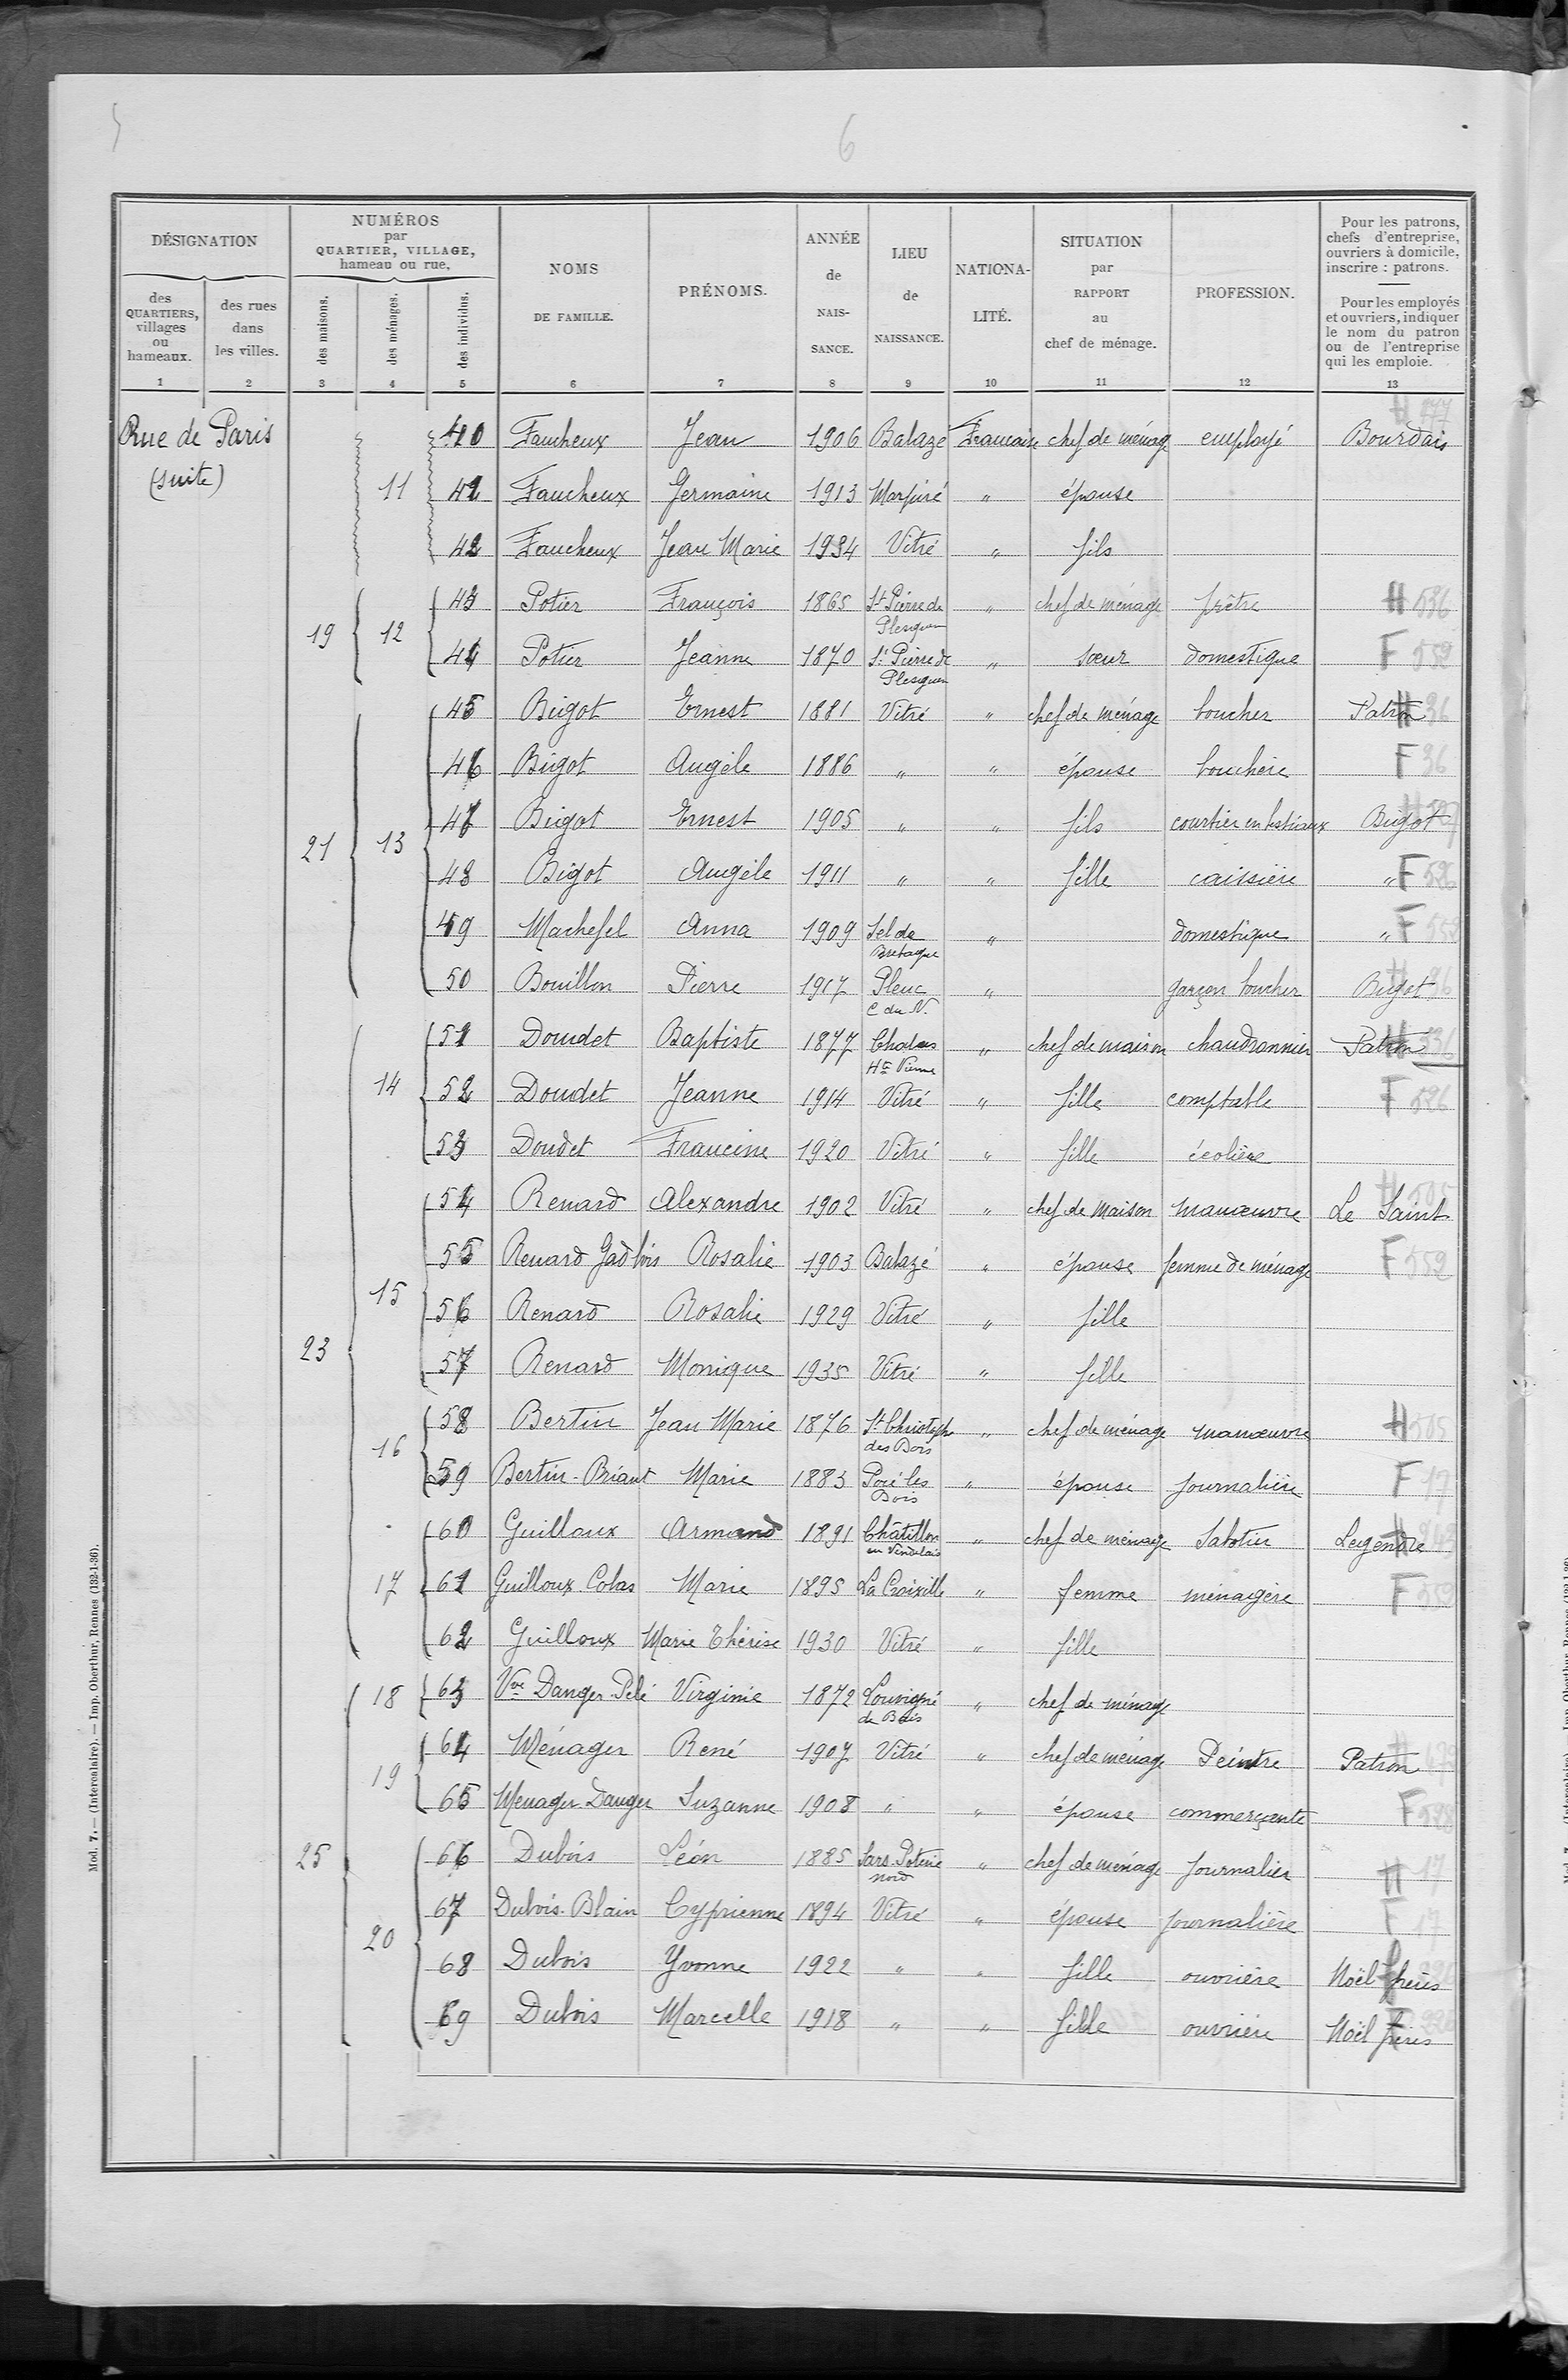 6
DÉSIGNATION
NUMÉROS
par
QUARTIER, VILLAGE,
hameau ou rue.
NOMS
DE FAMILLE.
PRÉNOMS.
ANNÉE
de
NAIS-
SANCE.
LIEU
de
NAISSANCE.
NATIONA-
LITÉ.
SITUATION
par
RAPPORT
au
chef de ménage.
PROFESSION.
Pour les patrons,
chefs d'entreprise,
ouvriers à domicile,
inscrire : patrons.
Pour les employés
et ouvriers, indiquer
le nom du patron
ou de l'entreprise
qui les emploie.
des
QUARTIERS,
villages
ou
hameaux.
des rues
dans
les villes.
des maisons.
des ménages.
des individus.
1 2 3 4 5 6 7 8 9 10 11 12 13
Rue de Paris
(suite)
40 Faucheux Jean 1906 Balazé Française chef de ménage employé Bourdais
11 41 Faucheux Germaine 1913 Marpiré " épouse
42 Faucheux Jean Marie 1934 Vitré " fils
43 Potier François 1865 St Pierre de Plesguen " chef de ménage prêtre H 536
19 12
44 Potier Jeanne 1870 St Pierre de Plesguen " sœur domestique F 559
45 Bigot Ernest 1881 Vitré " chef de ménage boucher Patron H 36
46 Bigot Angèle 1886 " " épouse bouchère F 36
47 Bigot Ernest 1905 " " fils courtier en bestiaux Bigot
21 13
48 Bigot Angèle 1911 " " fille caissière " F 526
49 Machefel Anna 1909 Sel de Bretagne " domestique " F 559
50 Bouillon Pierre 1917 Pleuc C du N. " garçon boucher Bigot
51 Doudet Baptiste 1877 Chalus Hte Vienne " chef de maison chaudronnier Patron
14 52 Doudet Jeanne 1914 Vitré " fille comptable F 526
53 Doudet Francine 1920 Vitré " fille écolière
54 Renard Alexandre 1902 Vitré " chef de maison manœuvre Le Saint
55 Renard Gadbois Rosalie 1903 Balazé " épouse femme de ménage F 559
15
56 Renard Rosalie 1929 Vitré " fille
23
57 Renard Monique 1935 Vitré " fille
58 Bertin Jean Marie 1876 St Christophe des Bois " chef de ménage manœuvre H 505
16
59 Bertin-Briant Marie 1883 Pocé les Bois " épouse journalière F 17
60 Guilloux Armand 1891 Châtillon en Vendelais " chef de ménage Sabotier Legendre
17 61 Guilloux Colas Marie 1895 La Croixille " femme ménagère F 559
62 Guilloux Marie Thérèse 1930 Vitré " fille
18 63 Vve Danger-Pelé Virginie 1872 Louvigné de Bais " chef de ménage
64 Ménager René 1907 Vitré " chef de ménage Peintre Patron
19
65 Menager Danger Suzanne 1908 " " épouse commerçante F 598
25
66 Dubois Léon 1885 Sars-Poterie Nord " chef de ménage Journalier H 17
67 Dubois-Blain Cyprienne 1894 Vitré " épouse journalière F 17
20
68 Dubois Yvonne 1922 " " fille ouvrière Noël frères
69 Dubois Marcelle 1918 " " fille ouvrière Noël frères
Mod. 7. — (Intercalaire). — Imp. Oberthur, Rennes (132-1-36).